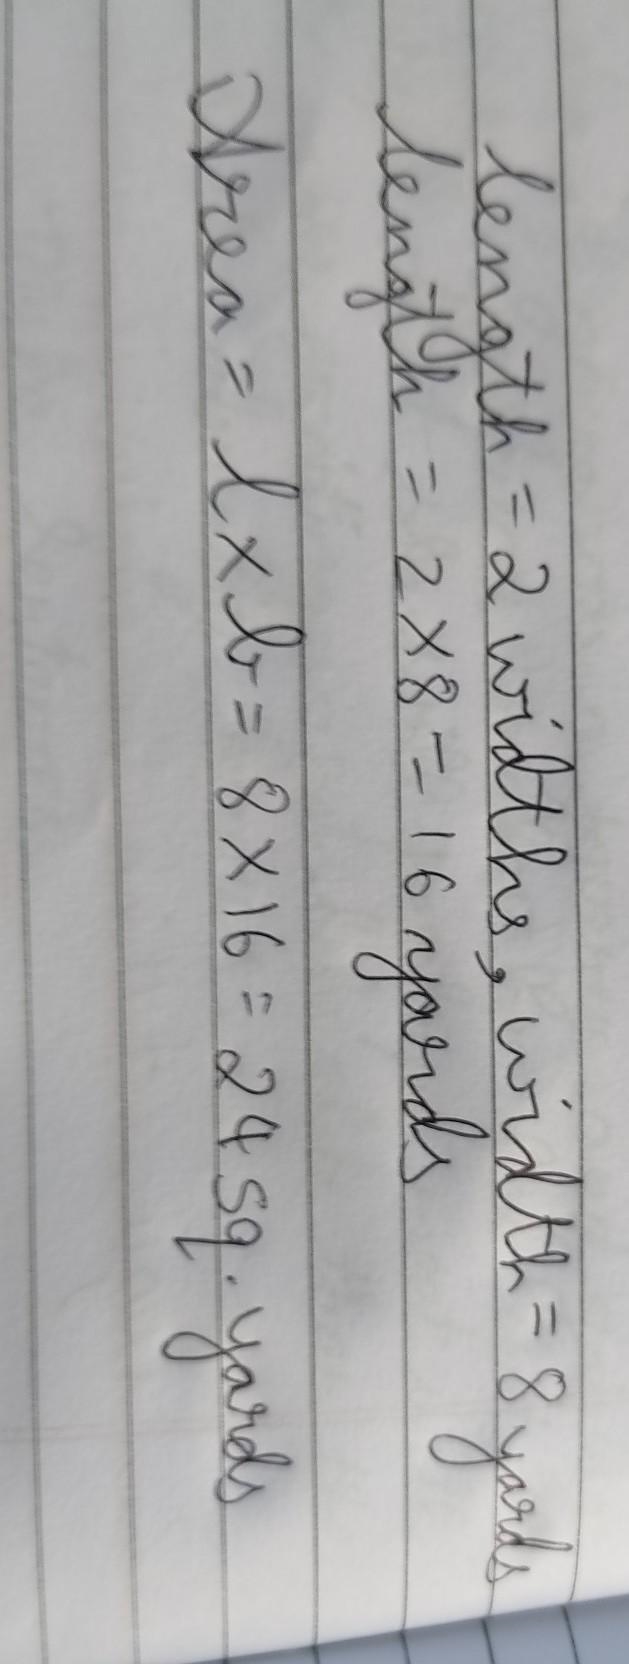 length = 2 widths, width = 8 yards
length = 2 × 8 = 16 yards
Area = l × b = 8 × 16 = 24 sq. yards